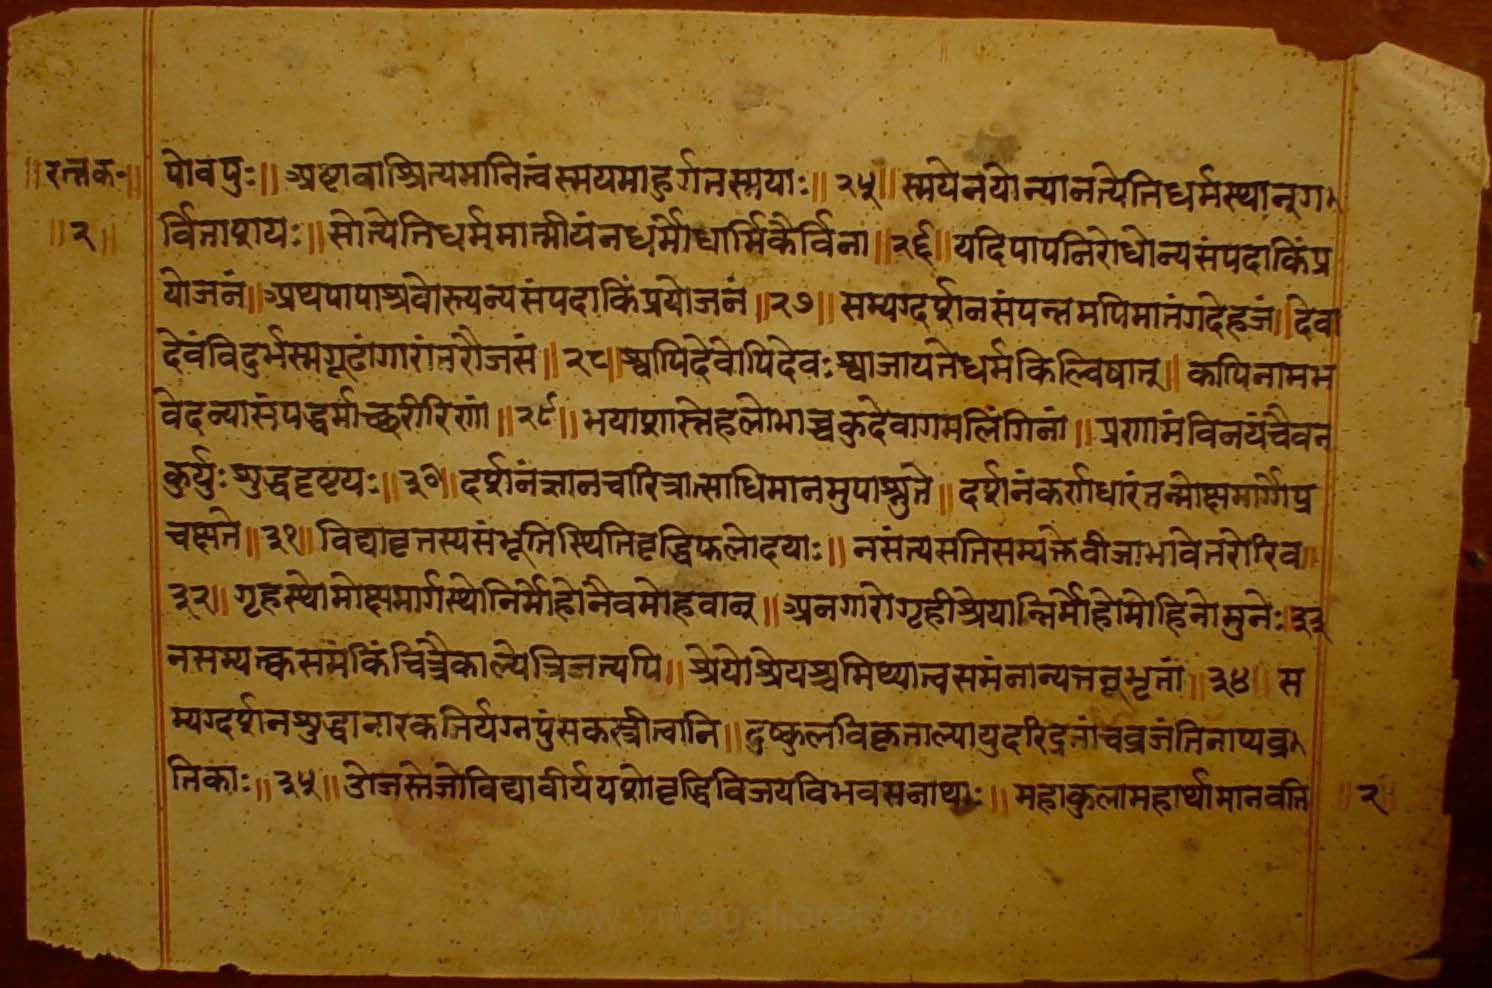 ॥रत्नक॰॥ पोवपुः॥ अष्टावाश्रित्यमानित्वंस्मयमाहुर्गतस्मयाः॥ २५॥ स्मयेनयोन्यानत्येतिधर्मस्थानुग
॥२॥ र्विताशयः॥ सोत्येतिधर्ममात्मीयंनधर्मोधार्मिकैर्विना॥ २६॥ यदिपापनिरोधोन्यसंपदाकिंप्र
योजनं॥ अथपापाश्रवोस्त्यन्यसंपदाकिंप्रयोजनं॥ २७॥ सम्यग्दर्शनसंपन्नमपिमातंगदेहजं॥ देवा
देवंविदुर्भस्मगूढांगारांतरौजसं॥ २८॥ श्वापिदेवोपिदेवःश्वाजायतेधर्मकिल्विषात्॥ कापिनामभ
वेदन्यासंपद्धर्माच्छरीरिणां॥ २९॥ भयाशास्नेहलोभाच्चकुदेवागमलिंगिनां॥ प्रणामंविनयंचैवन
कुर्युःशुद्धदृष्टयः॥ ३०॥ दर्शनंज्ञानचारित्रात्साधिमानमुपाश्नुते॥ दर्शनंकर्णधारंतन्मोक्षमार्गेप्र
चक्षते॥ ३१॥ विद्यावृत्तस्यसंभूतिस्थितिवृद्धिफलोदयाः॥ नसंत्यसतिसम्यक्तेवीजाभावेतरोरिव॥
३२॥ गृहस्थोमोक्षमार्गस्थोनिर्मोहोनैवमोहवान्॥ अनगारोगृहीश्रेयान्निर्मोहोमोहिनोमुनेः ३३
नसम्यत्क्वसमंकिंचित्त्रैकाल्येत्रिजगत्यपि॥ श्रेयोश्रेयश्चमिथ्यात्वसमंनान्यत्तनूभृतां॥ ३४॥ स
म्यग्दर्शनशुद्धानारकतिर्यग्नपुंसकस्त्रीत्वानि॥ दुष्कुलविकृताल्पायुर्दरिद्रतांचव्रजंतिनाप्यव्र
तिकाः॥ ३५॥ ओजस्तेजोविद्यावीर्ययशोवृद्धिविजयविभवसनाथाः॥ महाकुलामहार्थामानवति ॥२॥
www.viragalibrary.org